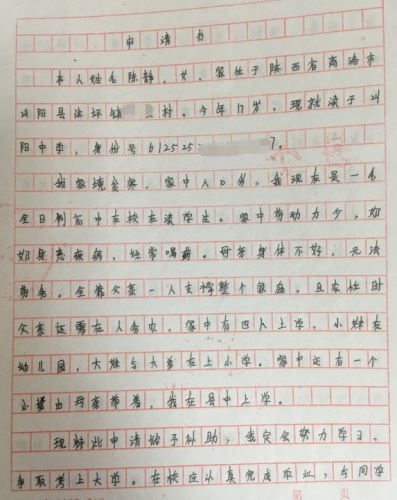 申请书
本人姓名陈静，女，家住于陕西省商洛市
山阳县法坪镇 村。今年17岁，现就读于山
阳中学，身份号612525 7。
我家境贫寒，家中人口多，我现在是一名
全日制高中在校在读学生。家中劳动力少，奶
奶身患疾病，经常喝药。母亲身体不好，无法
劳务。全靠父亲一人支撑整个家庭，且农忙时
父亲还需在人务农。家中有四人上学，小妹在
幼儿园，大妹与大弟在上小学。家中还有一个
小弟由母亲带着，我在县中上学。
现特此申请给予补助，我定会努力学习，
争取考上大学。在校应认真完成学业，与同学
第 页